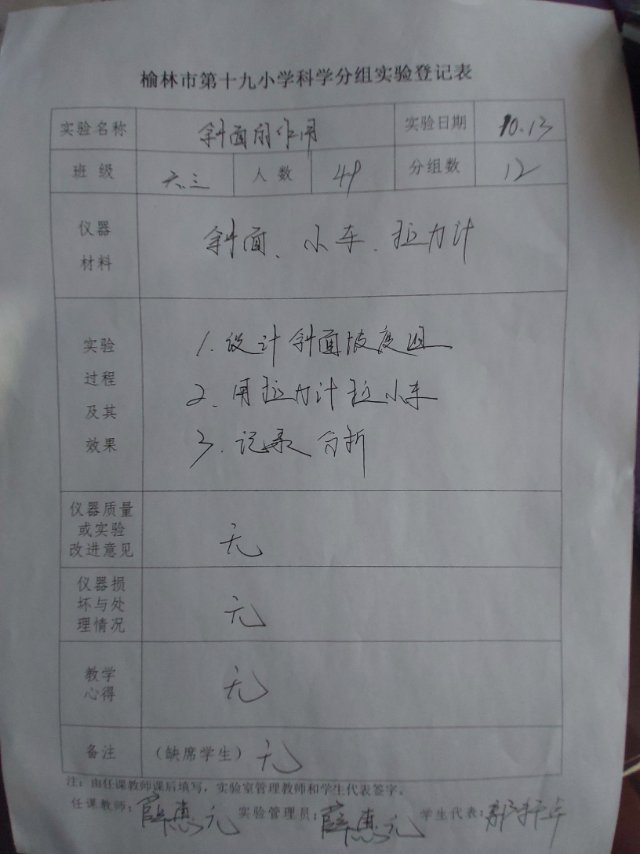 榆林市第十九小学科学分组实验登记表
实验名称 斜面的作用 实验日期 10.13
班级 六.三 人数 49 分组数 12
仪器材料 斜面、小车、拉力计
实验过程及其效果
1. 设计斜面坡度组
2. 用拉力计拉小车
3. 记录分析
仪器质量或实验改进意见 无
仪器损坏与处理情况 无
教学心得 无
备注 (缺席学生) 无
注：由任课教师课后填写，实验室管理教师和学生代表签字。
任课教师：薛惠元 实验管理员：薛惠元 学生代表：